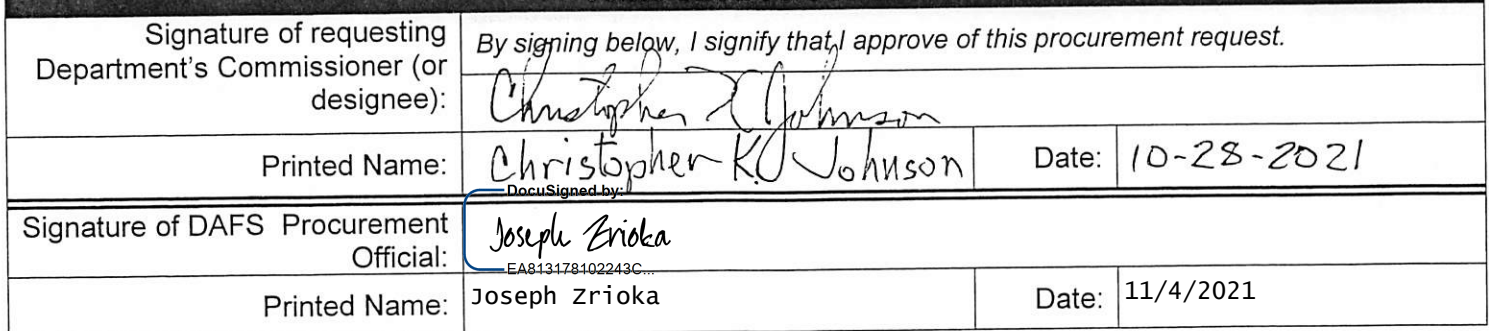 Signature of requesting
Department's Commissioner (or
designee):
By signing below, I signify that I approve of this procurement request.
Christopher K Johnson
Printed Name:
Christopher K. Johnson
Date:
10-28-2021
DocuSigned by:
Signature of DAFS Procurement
Official:
Joseph Zrioka
EA813178102243C...
Printed Name:
Joseph Zrioka
Date:
11/4/2021